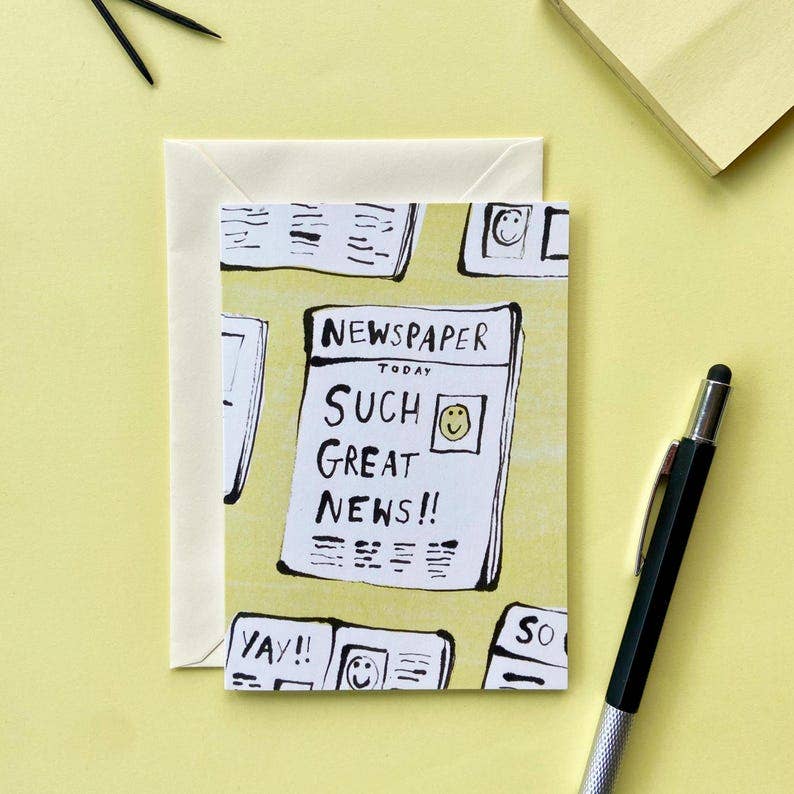 NEWSPAPER
TODAY
SUCH
GREAT
NEWS!!
YAY!!
SO